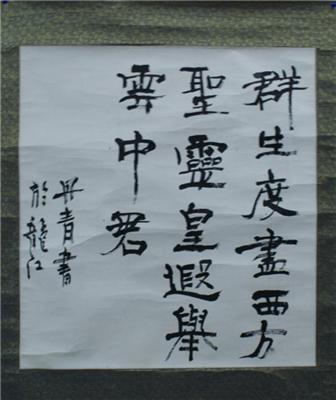 群生度盡西方
聖靈皇遐舉
雲中君
丹青書
於龍江